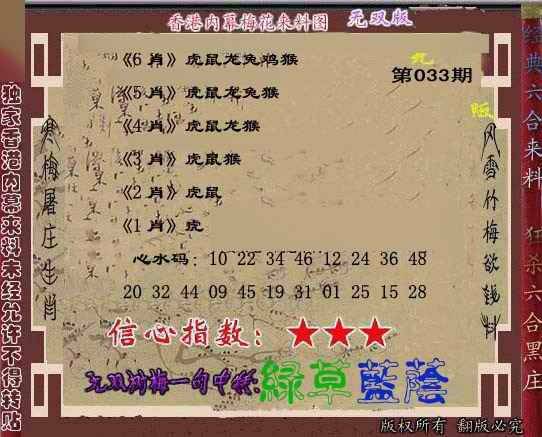 香港内幕梅花来料图 无双版
《6 肖》虎鼠龙兔鸡猴
九
第033期
《5 肖》虎鼠龙兔猴
版
《4 肖》虎鼠龙猴
《3 肖》虎鼠猴
《2 肖》虎鼠
《1 肖》虎
心水码：10 22 34 46 12 24 36 48
20 32 44 09 45 19 31 01 25 15 28
信心指数：★★★
绿草蓝荫
版权所有 翻版必究
独家香港内幕来料未经允许不得转贴
寒梅屠庄生肖
风雪竹梅欲钱料
经典六合来料 狂杀六合黑庄